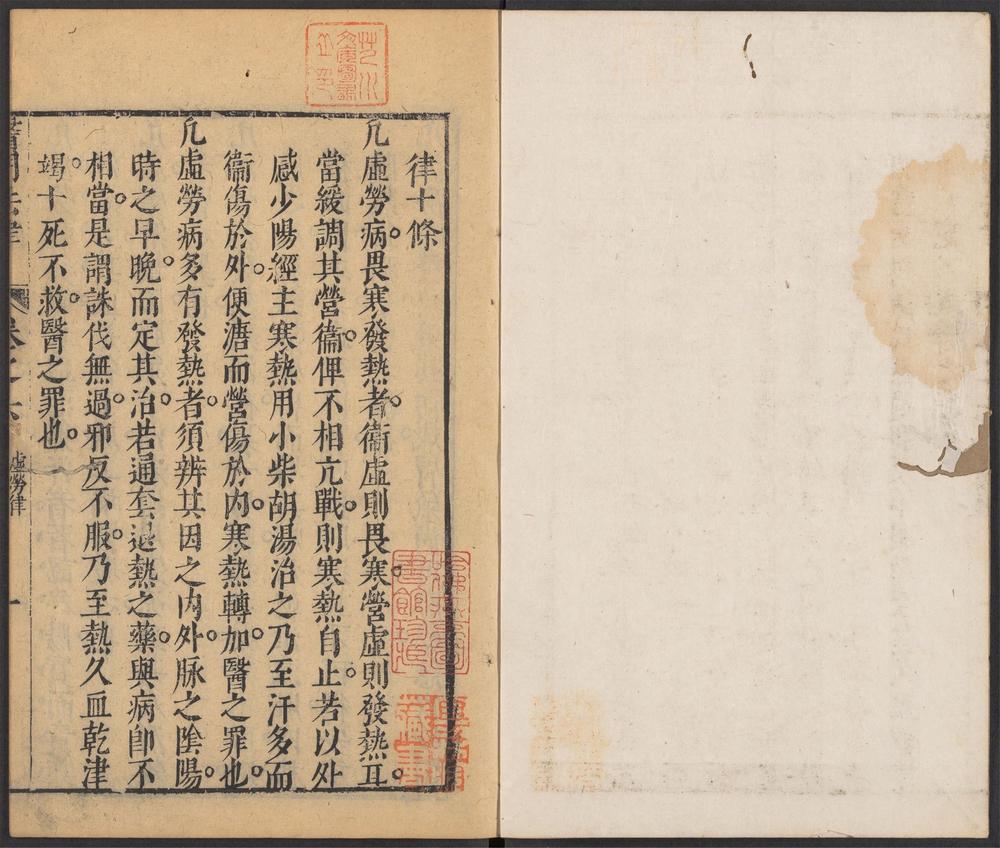 律十條
凡虛勞病。畏寒發熱者。衞虛則畏寒。營虛則發熱耳。
當緩調其營衞。俾不相亢戰。則寒熱自止。若以外
感少陽經主寒熱。用小柴胡湯治之。乃至汗多而
衞傷於外。便溏而營傷於內。寒熱轉加。醫之罪也。
凡虛勞病。多有發熱者。須辨其因之內外。脉之陰陽。
時之早晚。而定其治。若通套退熱之藥。與病卽不
相當。是謂誅伐無過。邪反不服。乃至熱久血乾津
竭。十死不救。醫之罪也。
醫門法律
卷之六
虛勞律
一